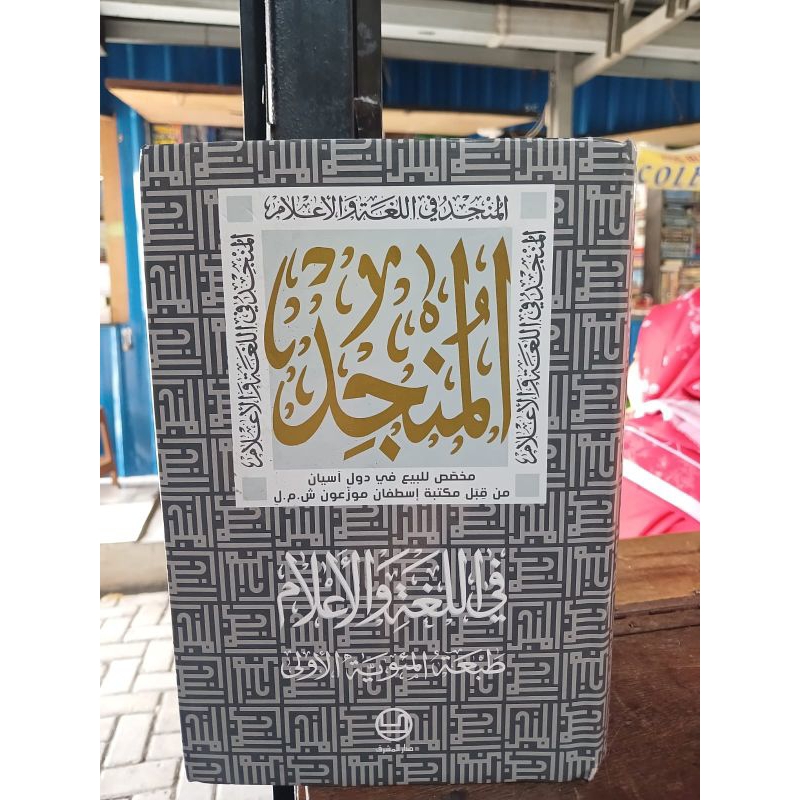 المنجد في اللغة والأعلام
المنجد في اللغة والأعلام
المنجد في اللغة والأعلام
المُنجِد
مخصّص للبيع في دول آسيان
من قِبَل مكتبة إسطفان موزعون ش.م.ل
في اللغة والأعلام
طبعة المئوية الأولى
دار المشرق
COLE